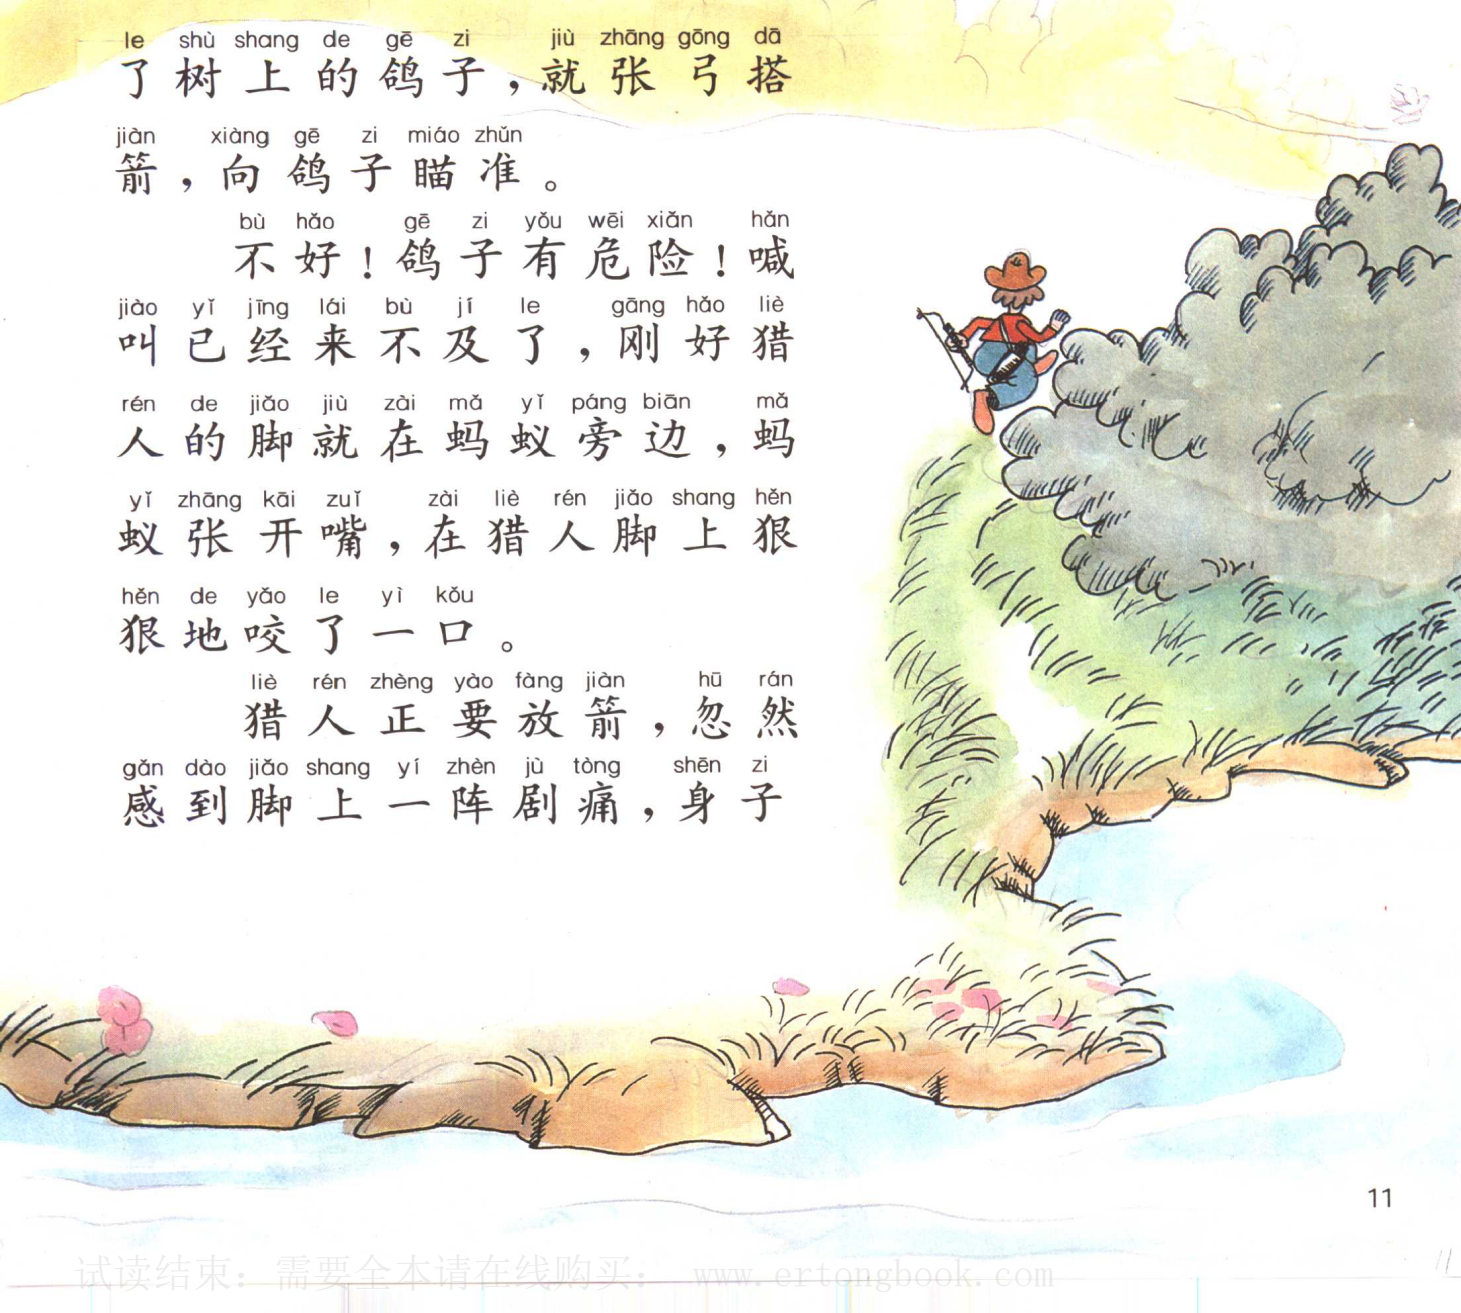 le shù shang de gē zi jiù zhāng gōng dā
了树上的鸽子，就张弓搭
jiàn xiàng gē zi miáo zhǔn
箭，向鸽子瞄准。
bù hǎo gē zi yǒu wēi xiǎn hǎn
不好！鸽子有危险！喊
jiào yǐ jīng lái bù jí le gāng hǎo liè
叫已经来不及了，刚好猎
rén de jiǎo jiù zài mǎ yǐ páng biān mǎ
人的脚就在蚂蚁旁边，蚂
yǐ zhāng kāi zuǐ zài liè rén jiǎo shang hěn
蚁张开嘴，在猎人脚上狠
hěn de yǎo le yì kǒu
狠地咬了一口。
liè rén zhèng yào fàng jiàn hū rán
猎人正要放箭，忽然
gǎn dào jiǎo shang yí zhèn jù tòng shēn zi
感到脚上一阵剧痛，身子
11
试读结束：需要全本请在线购买： www.ertongbook.com